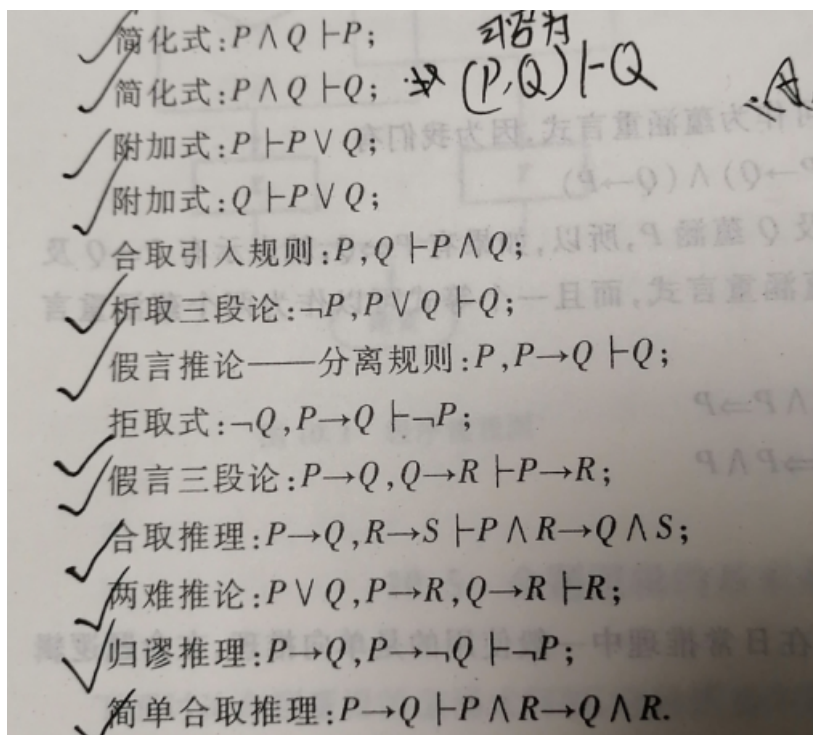 简化式:P∧Q├P;
习容为
简化式:P∧Q├Q;
(P,Q)├Q
附加式:P├P∨Q;
附加式:Q├P∨Q;
合取引入规则:P,Q├P∧Q;
析取三段论:¬P,P∨Q├Q;
假言推论——分离规则:P,P→Q├Q;
拒取式:¬Q,P→Q├¬P;
假言三段论:P→Q,Q→R├P→R;
合取推理:P→Q,R→S├P∧R→Q∧S;
两难推论:P∨Q,P→R,Q→R├R;
归谬推理:P→Q,P→¬Q├¬P;
简单合取推理:P→Q├P∧R→Q∧R.